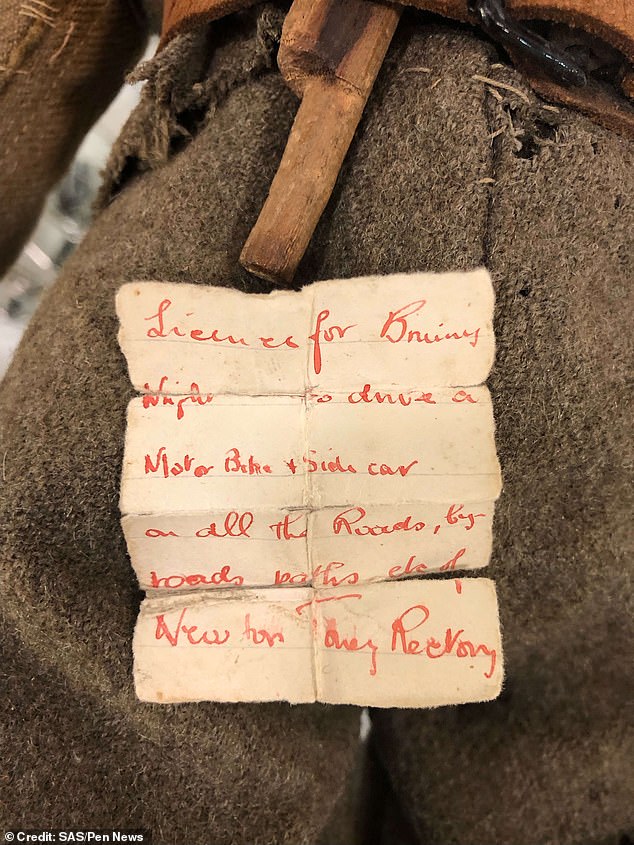 Licence for Bruins
Wight to drive a
Motor Bike + Side car
on all the Roads, by-
roads paths etc of
Newton Toney Rectory
© Credit: SAS/Pen News